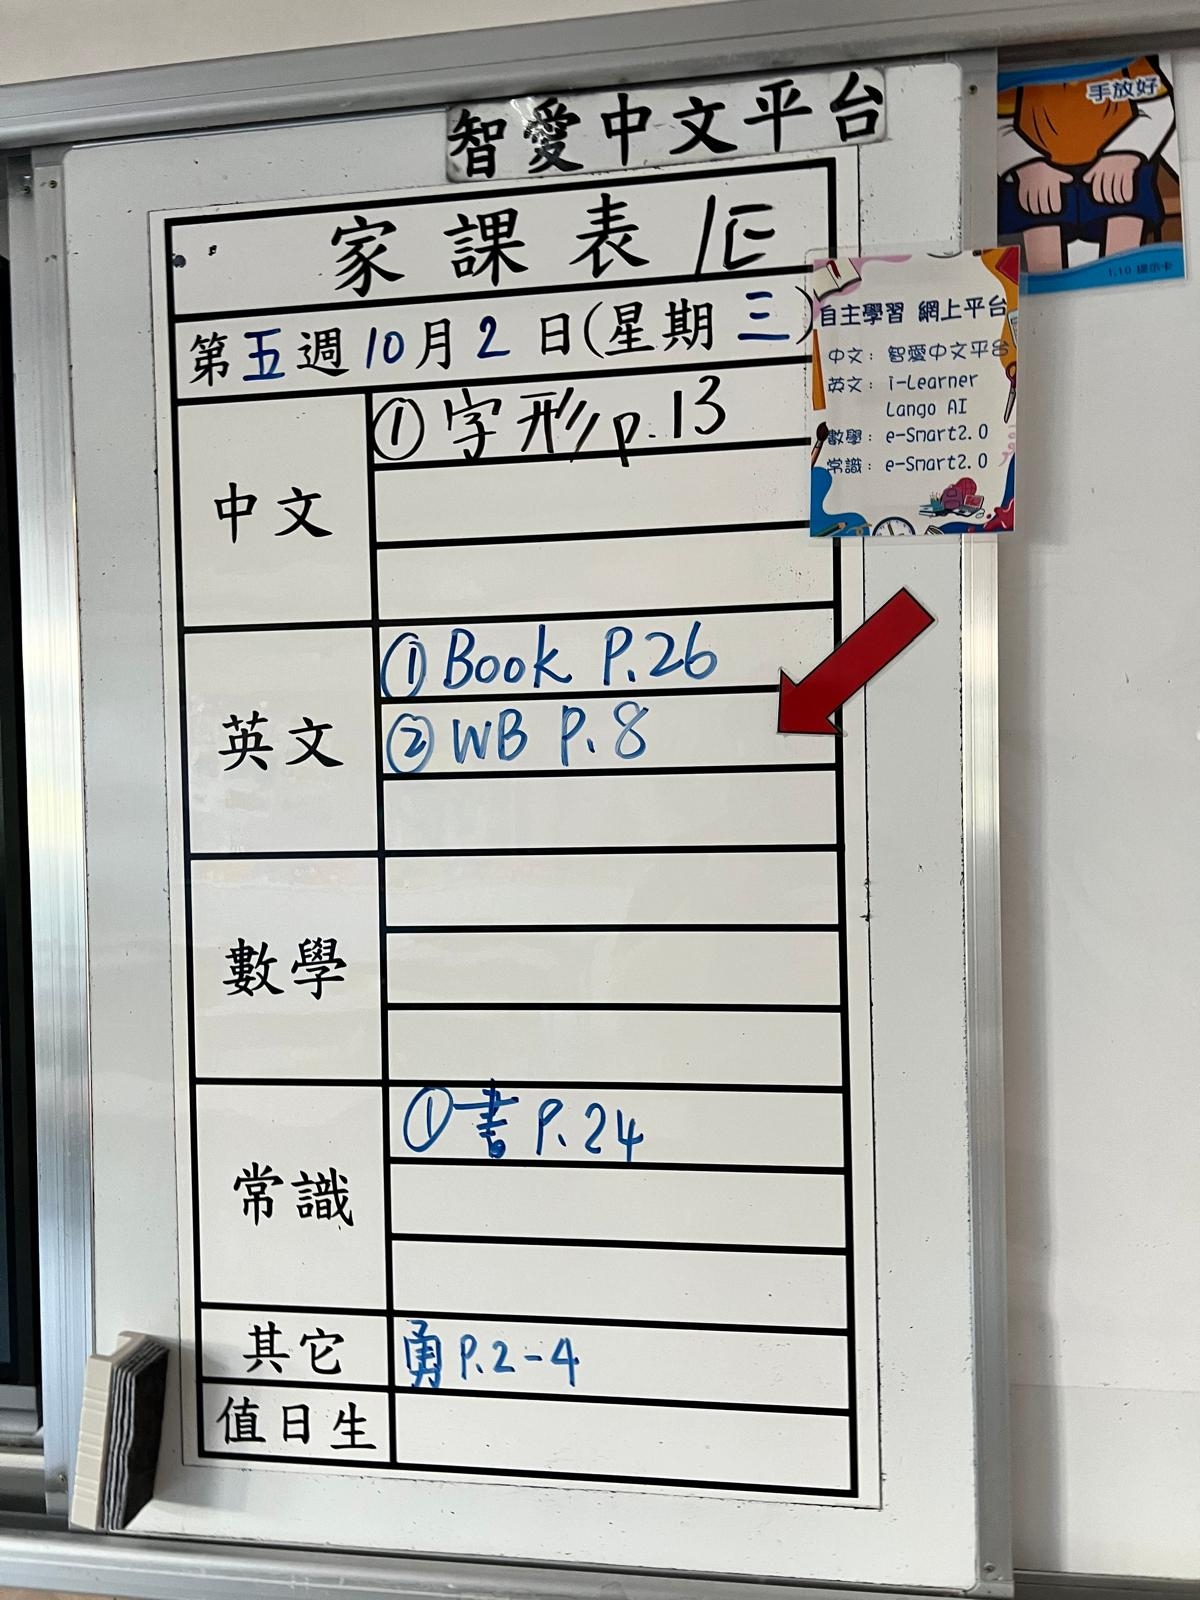 智愛中文平台
家課表 1E
第五週10月2日(星期三)
中文
① 字形 p.13
英文
① Book P.26
② WB P.8
數學
常識
① 書 P.24
其它
勇 P.2-4
值日生
手放好
1.10 提示卡
自主學習 網上平台
中文：智愛中文平台
英文：i-Learner
Lango AI
數學：e-Smart2.0
常識：e-Smart2.0